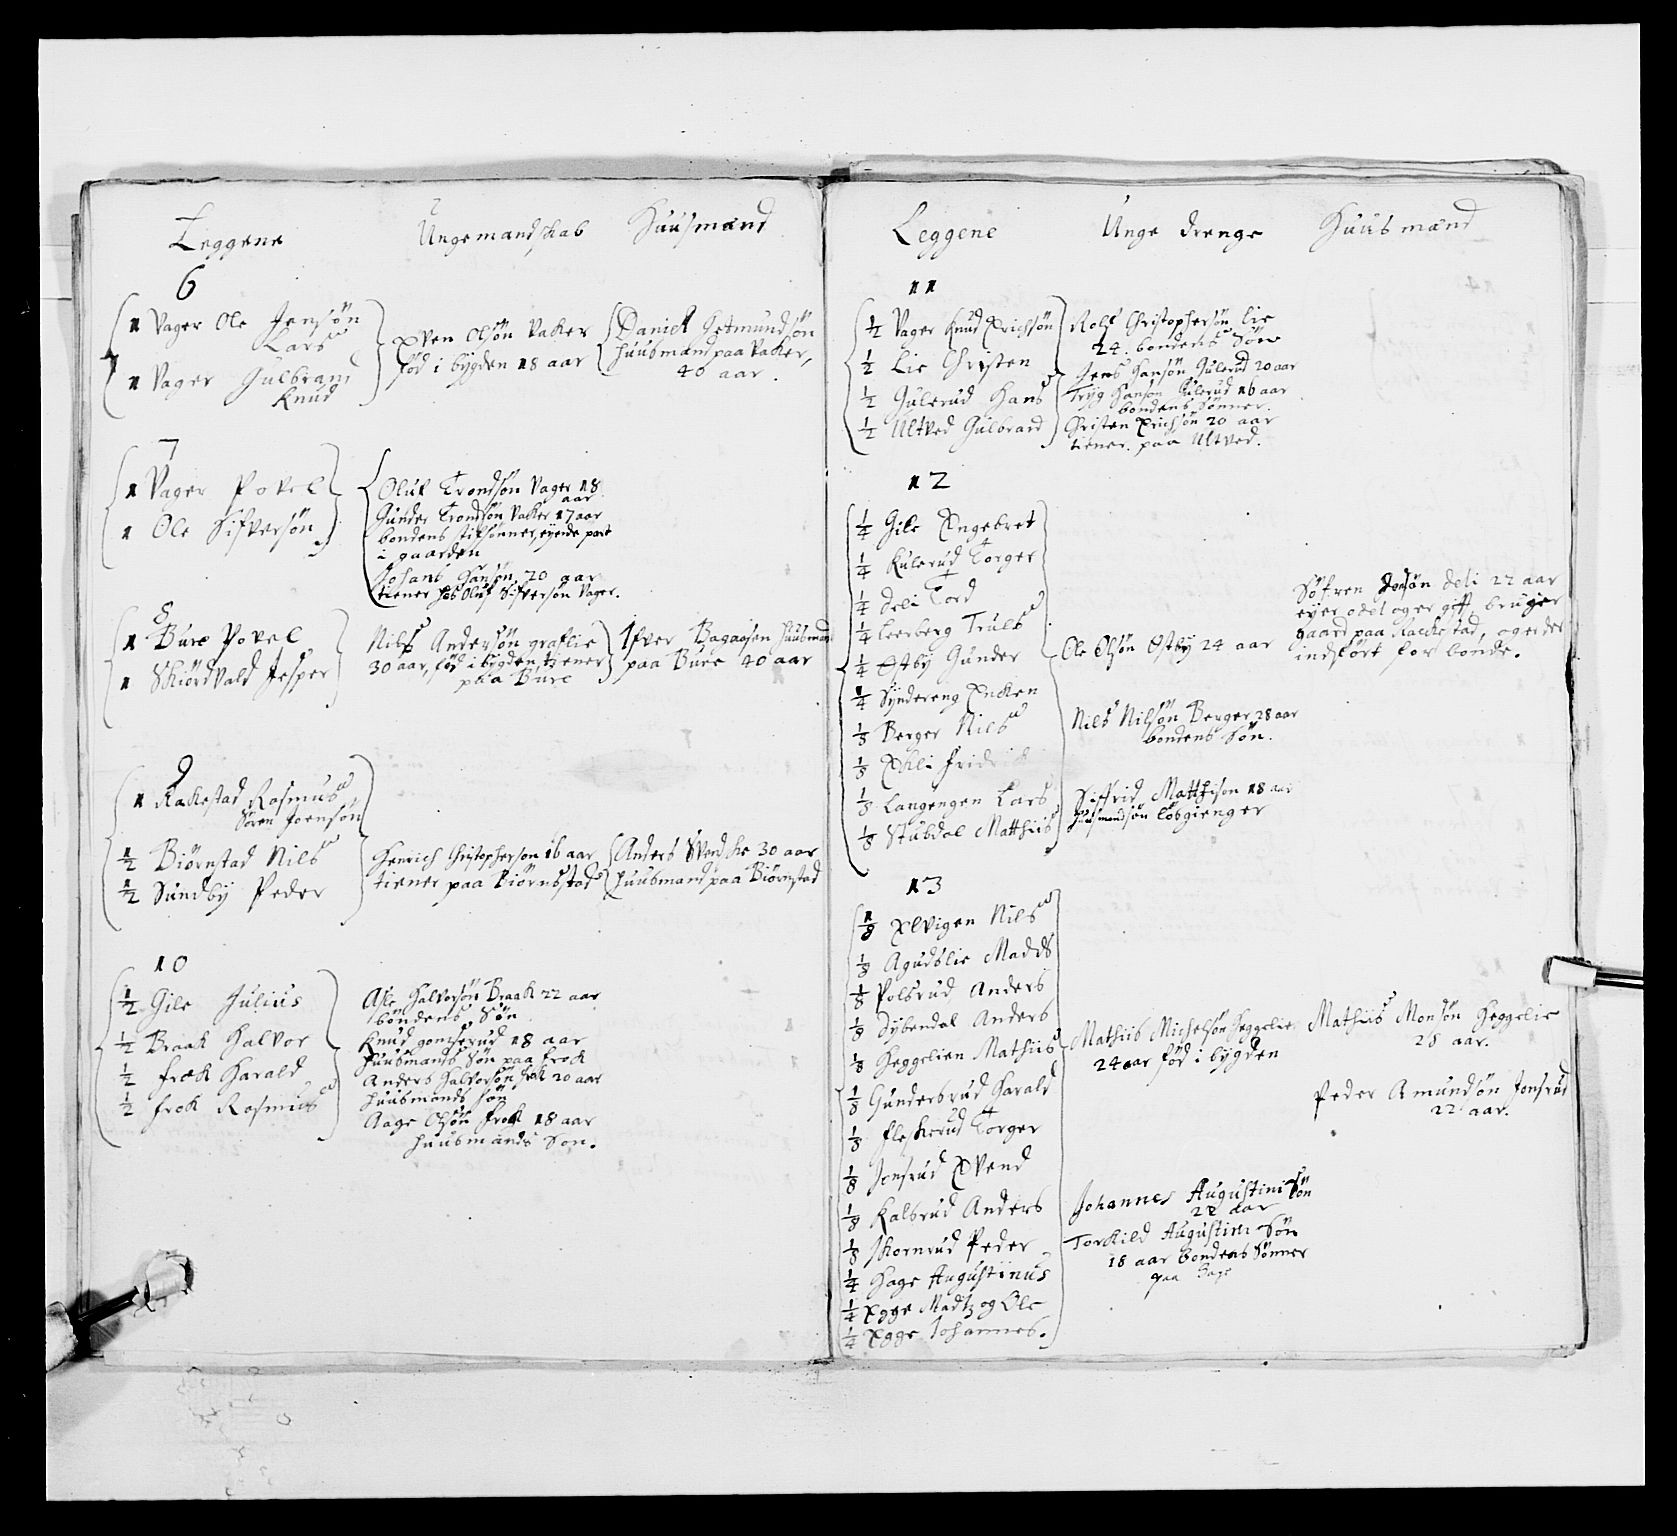 Leggene Ungemandskab Huusmænd
6
1 Vager Ole Jensøn
Lars
1 Vager Gulbrand
Knud
Even Olsøn Vaker
fød i bygden 18 aar
Daniel
huusmand paa Vaker,
40 aar.
7
1 Vager Povel
1 Ole Sifversøn
Oluf Trondsøn Vager 18
aar
Gunder Trondsøn Vaker 17 aar
bondens stifsønner, eyende part
i gaarden
Johans Hansøn 20 aar
tiener hos Oluf Sifversøn Vager.
8
1 Bure Povel
1 Skiørdvald Jesper
Nils Andersøn graflie
30 aar, fød i bygden, tiener
paa Bure
Ifver Bagaasen huusmand
paa Bure 40 aar
9
1 Rakestad Rasmus
Søren Joensøn
1/2 Biørnstad Nils
1/2 Sundby Peder
Henrich Christopherson 16 aar
tiener paa Biørnstad
Anders Svendske 30 aar
huusmand paa Biørnstad
10
1/2 Gile Julius
1/2 Braak Halvor
1/2 frok Harald
1/2 frok Rasmus
Asle Halvorsøn Braak 22 aar
bondens Søn
Knud 18 aar
huusmands Søn paa frok
Anders Halvorsøn frok 20 aar
huusmands søn
Aage Olsøn frok 18 aar
huusmands Søn.
Leggene Unge Drenge Huusmænd
11
1/2 Vager Knud Erichsøn
1/2 Lie Christen
1/2 Gulerud Hans
1/2 Ultved Gulbrand
Rolf Christophersøn Lie
24. bondens Søn
Jens Hansøn Gulerud 20 aar
Tryg Hansøn Gulerud 16 aar
bondens Sønner.
Christen Erichsøn 20 aar
tiener paa Ultved.
12
1/4 Gile Engebret
1/4 Kulerud Torger
1/4 Deli Tord
1/4 Leerberg Truls
1/4 Østby Gunder
1/4 Syndereng Encken
1/8 Berger Nils
1/8 Ekli Fridrich
1/8 Langengen Lars
1/8 Stubdal Matthiis
Ole Olsøn Østby 24 aar
Nils Nilsøn Berger 28 aar
bondens Søn.
Siffrid Matthison 18 aar
huusmandsøn løsgienger
Søfren Joensøn Deli 22 aar
eyer odel og er gift, bruger
gaard paa Rackestad, og er der
indført for bonde.
13
1/8 Elvigen Nils
1/8 Agudslie Madds
1/8 Polsrud Anders
1/8 Dybendal Anders
1/8 Heggelien Mathiis
1/8 Gundersrud Harald
1/8 Fleskerud Torger
1/8 Jonsrud Evend
1/8 Kalsrud Anders
1/8 Skornrud Peder
1/4 Hage Augustinus
1/4 Egge Madtz og Ole
1/4 Egge Johannes.
Mathiis Michelsøn Heggelie
24 aar fød i bygden
Mathiis Monsøn Heggelie
28 aar.
Peder Amundsøn Jonsrud
22 aar.
Johannes Augustini Søn
22 aar
Torkild Augustini Søn
18 aar bondens Sønner
paa Hage